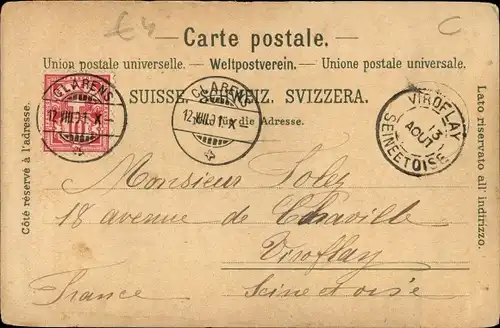 Carte postale.
Union postale universelle. — Weltpostverein. — Unione postale universale.
SUISSE. SCHWEIZ. SVIZZERA.
Nur für die Adresse.
Côté réservé à l'adresse.
Lato riservato all' indirizzo.
CLARENS
12.VIII.01. X
10
CLARENS
12.VIII.01. X
VIROFLAY
13
AOUT
SEINE ET OISE
Monsieur Solez
18 avenue de Chaville
Viroflay
France Seine et oise